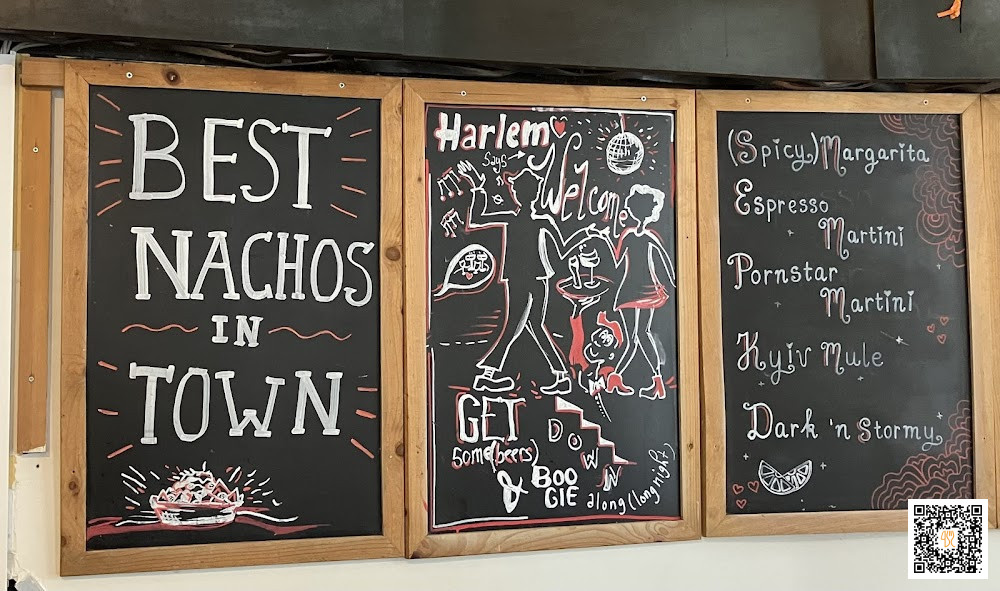 BEST
NACHOS
IN
TOWN
Harlem
says
Welcome
GET
DOWN
some(beers)
& BOO
GIE
along (long night)
(Spicy) Margarita
Espresso
Martini
Pornstar
Martini
Kyiv Mule
Dark 'n Stormy